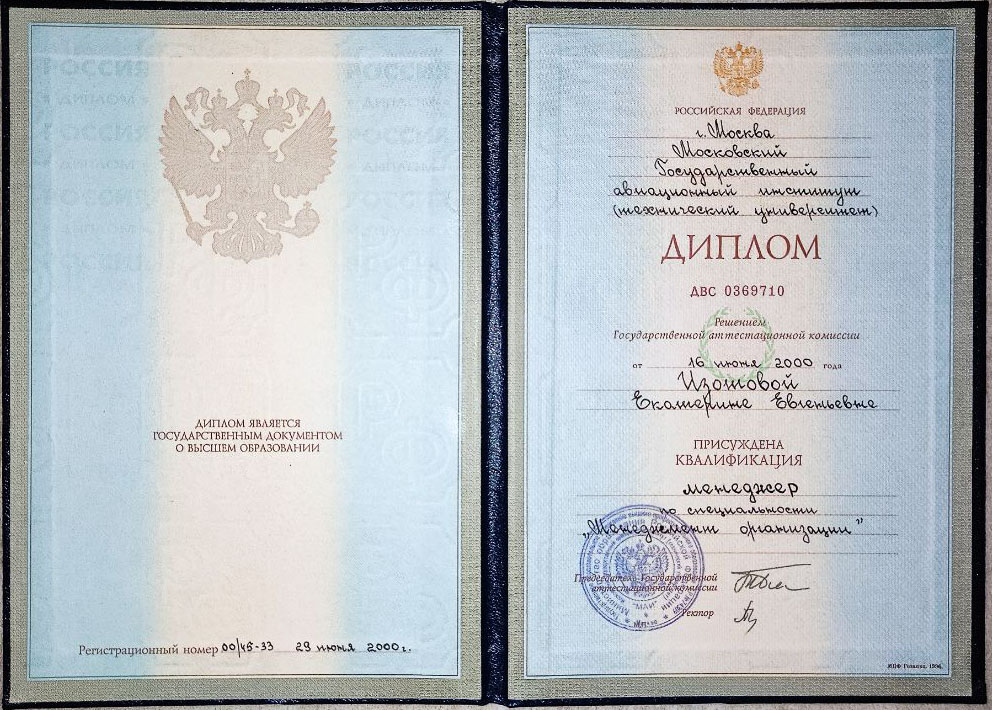 ДИПЛОМ ЯВЛЯЕТСЯ
ГОСУДАРСТВЕННЫМ ДОКУМЕНТОМ
О ВЫСШЕМ ОБРАЗОВАНИИ
Регистрационный номер 00/45-33 29 июня 2000г.
РОССИЙСКАЯ ФЕДЕРАЦИЯ
г. Москва
Московский
Государственный
авиационный институт
(технический университет)
ДИПЛОМ
ДВС 0369710
Решением
Государственной аттестационной комиссии
от 16 июня 2000 года
Изотовой
Екатерине Евгеньевне
ПРИСУЖДЕНА
КВАЛИФИКАЦИЯ
менеджер
по специальности
„Менеджмент организации"
Председатель Государственной
аттестационной комиссии
Ректор
"МАИ"